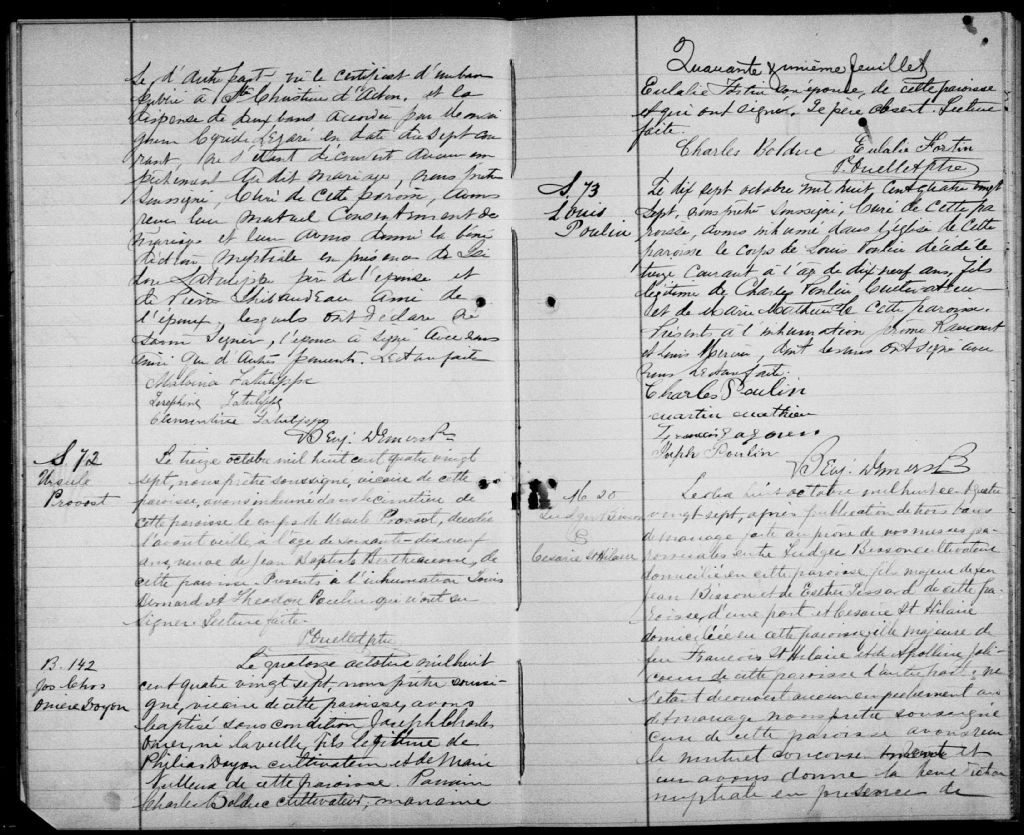 se d'autre part vu le certificat d'un ban
publié à Ste Christine d'Acton, et la
dispense de deux bans accordée par
Cyrille Légaré en date du sept cou
rant, ne s'étant découvert aucun em
pêchement au dit mariage, nous prêtre
soussigné, Curé de cette paroisse, avons
reçu leur mutuel Consentement de
mariage et leur avons donné la béné
diction nuptiale en présence de
Latulippe père de l'épouse et
de Pierre Thibaudeau ami de
l'époux, lesquels ont déclaré ne
savoir signer, l'épouse a signé avec nous
ainsi que d'autres parents. Lecture faite
Malvina Latulippe
Josephine Latulippe
Clementine Latulippe
Benj. Demers Ptre
S. 72
Ursule
Provost
Le treize octobre mil huit cent quatre vingt
sept, nous prêtre soussigné, vicaire de cette
paroisse, avons inhumé dans le cimetière de
cette paroisse le corps de Ursule Provost, décédée
l'avant veille à l'âge de soixante-dix neuf
ans, veuve de Jean Baptiste Berthiaume, de
cette paroisse. Présents à l'inhumation Louis
Bernard et Theodore Poulin qui n'ont su
signer. Lecture faite.
P. Ouellet ptre
B. 142
Jos Chs
Omer Doyon
Le quatorze octobre mil huit
cent quatre vingt sept, nous prêtre soussi-
gné, vicaire de cette paroisse, avons
baptisé sous condition Joseph Charles
Omer, né la veille, fils légitime de
Philias Doyon cultivateur et de Marie
Veilleux de cette paroisse. Parrain
Charles Bolduc cultivateur, marraine
Quarante & unième feuillet
Eulalie Fortin son épouse, de cette paroisse
et qui ont signé. Le père absent. Lecture
faite.
Charles Bolduc Eulalie Fortin
P. Ouellet ptre
S. 73
Louis
Poulin
Le dix sept octobre mil huit cent quatre vingt
sept, nous prêtre soussigné, Curé de cette pa
roisse, avons inhumé dans l'église de cette
paroisse le corps de Louis Poulin décédé le
treize courant à l'age de dix neuf ans, fils
légitime de Charles Poulin Cultivateur
et de Marie Mathieu de cette paroisse.
Présents à l'inhumation Jérôme Rancourt
et Louis Mercier, dont les uns ont signé avec
nous Lecture faite.
Charles Poulin
martin mathieu
Joseph Poulin
Benj. Demers P
M 20
Ludger Bisson
&
Cesarie St Hilaire
Le dix huit octobre mil huit cent quatre
vingt sept, après publication de trois bans
de mariage faite au prone de nos messes pa-
roissiales entre Ludger Bisson cultivateur
domicilié en cette paroisse fils majeur de feu
Jean Bisson et de Esther Lessard de cette pa-
roisse, d'une part et Cesarie St Hilaire
domiciliée en cette paroisse fille majeure de
feu Francois St Hilaire et de Apolline Joli
coeur de cette paroisse d'autre part, ne
s'étant découvert aucun empêchement au
dit mariage nous prêtre soussigné
cure de cette paroisse avons reçu
le mutuel et
avons donné la béné diction
nuptiale en présence de